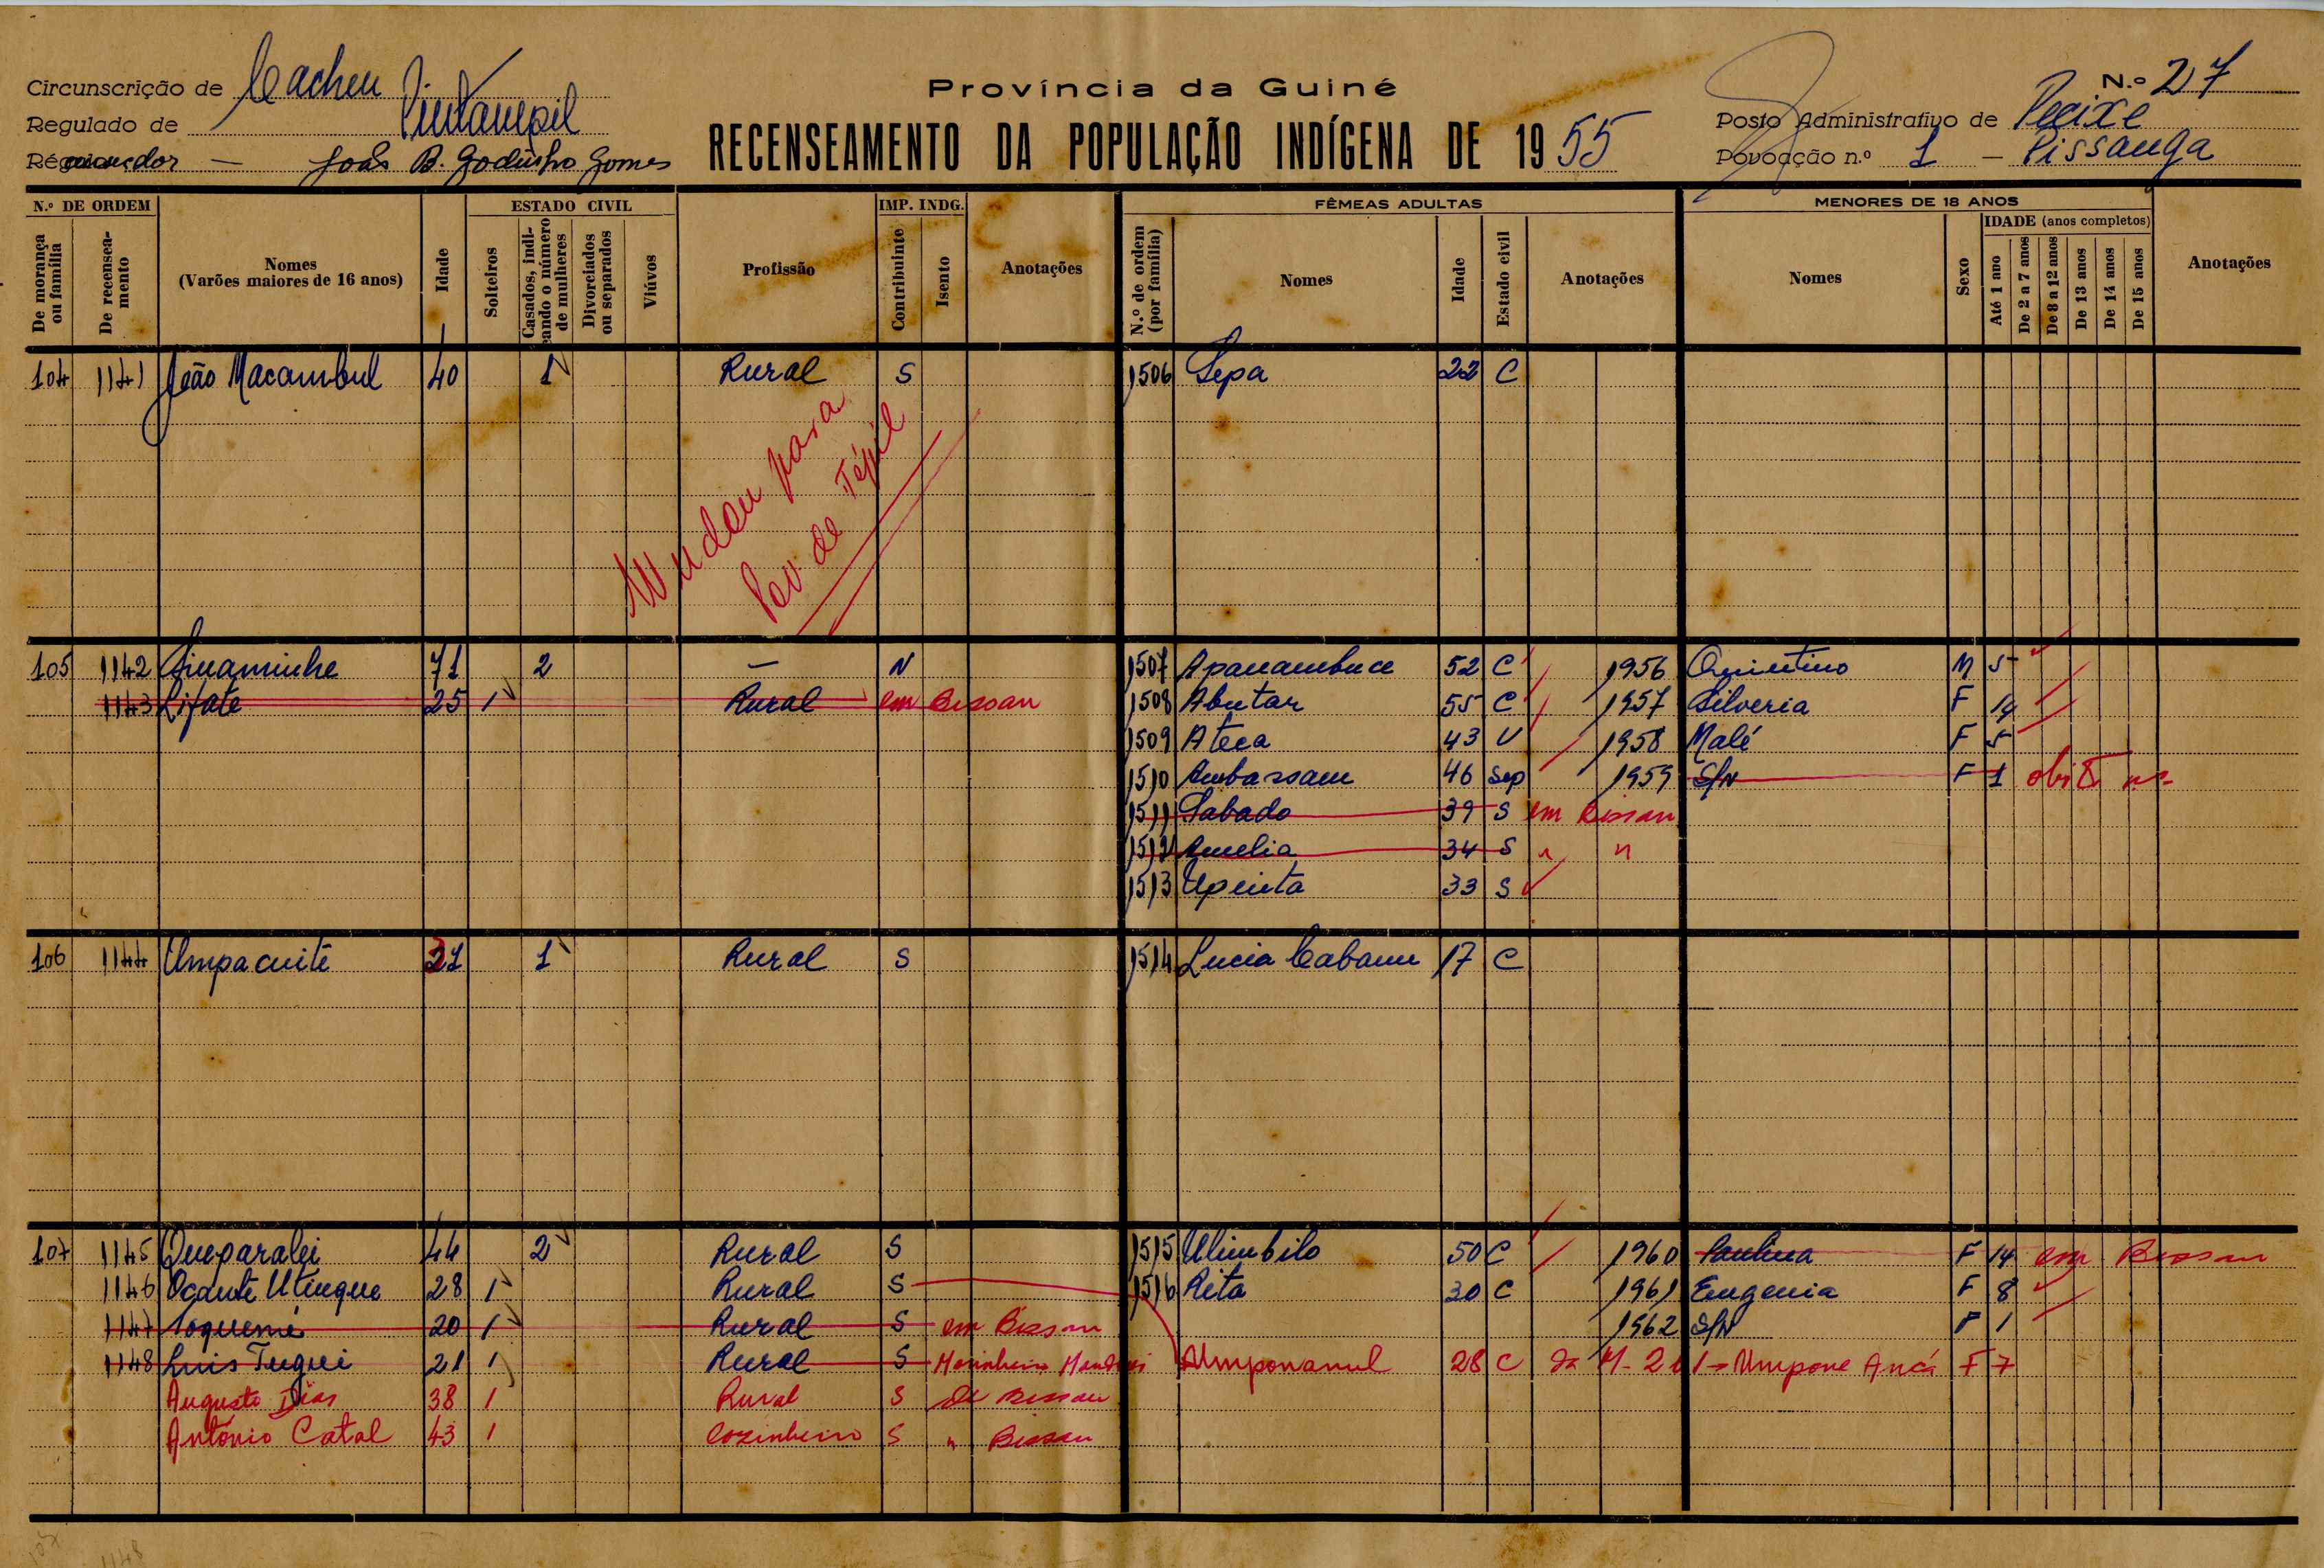 Província da Guiné
N.º 27
Circunscrição de Cacheu
Regulado de Pintampil
João B. Godinho Gomes
RECENSEAMENTO DA POPULAÇÃO INDÍGENA DE 1955
Posto Administrativo de Pecixe
Povoação n.º 1 — Pissanga
N.º DE ORDEM
De morança ou família
De recenseamento
Nomes
(Varões maiores de 16 anos)
Idade
ESTADO CIVIL
Solteiros
Casados, indicando o número de mulheres
Divorciados ou separados
Viúvos
Profissão
IMP. INDG.
Contribuinte
Isento
Anotações
FÊMEAS ADULTAS
N.º de ordem (por família)
Nomes
Idade
Estado civil
Anotações
MENORES DE 18 ANOS
Nomes
Sexo
IDADE (anos completos)
Até 1 ano
De 2 a 7 anos
De 8 a 12 anos
De 13 anos
De 14 anos
De 15 anos
Anotações
104 1141 João Macambul 40 1 Rural S 1506 Sepa 22 C
Mudou para
Pov. de Tépil
105 1142 Sinaminhe 71 2 — N 1507 Apanambuce 52 C 1956 Quintino M 5
1143 Lifate 25 1 Rural em Bissau 1508 Abutar 55 C 1957 Silveria F 14
1509 Ateca 43 V 1958 Malé F 5
1510 Ambassam 46 Sep 1959 S/N F 1
1511 Sabado 39 S em Bissau
1512 Amelia 34 S " "
1513 Upinta 33 S
106 1144 Umpacuité 21 1 Rural S 1514 Lucia Cabanu 17 C
107 1145 Queparalei 44 2 Rural S 1515 Ulimbilo 50 C 1960 Paulina F 14 em Bissau
1146 Ocante Utinque 28 1 Rural S 1516 Rita 30 C 1961 Eugenia F 8
1147 Toquemé 20 1 Rural S em Bissau 1962 S/N F 1
1148 Luis Tugui 21 1 Rural S Marinheiro Umponamul 28 C da M-21 1 - Umpone Ancá F 7
Augusto Dias 38 1 Rural S de Bissau
António Catal 43 1 Cozinheiro S " Bissau
1148